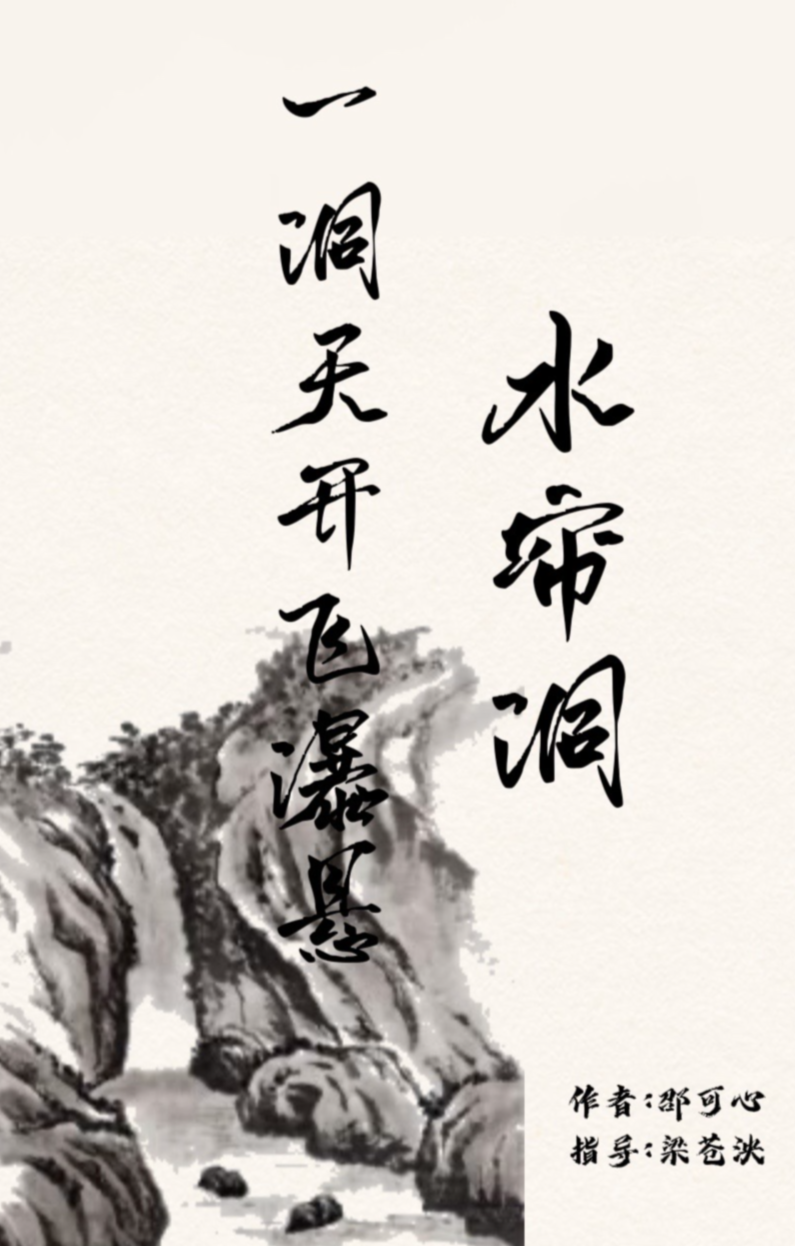 水帘洞
一洞天开飞瀑悬
作者:邵可心
指导:梁苍泱